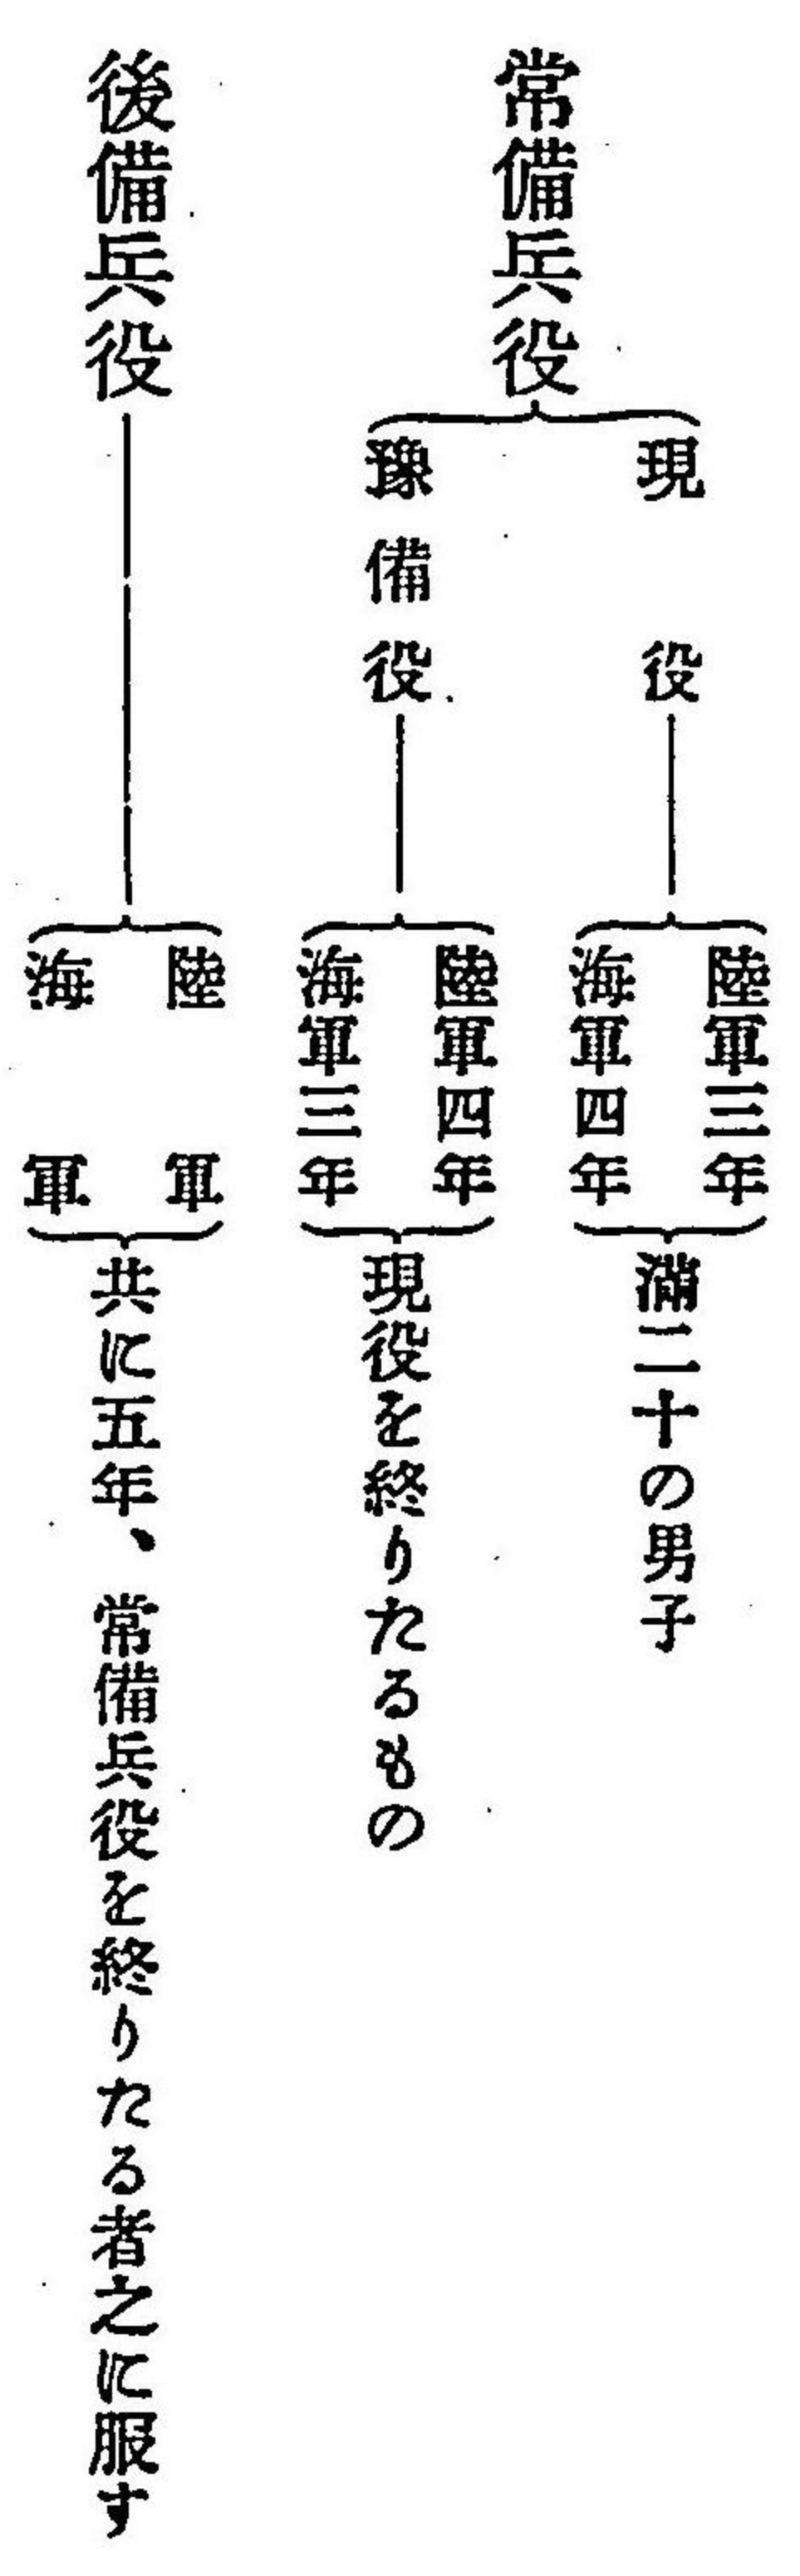 常備兵役
現役
陸軍三年
海軍四年
滿二十の男子
豫備役
陸軍四年
海軍三年
現役を終りたるもの
後備兵役
陸軍
海軍
共に五年、常備兵役を終りたる者之に服す